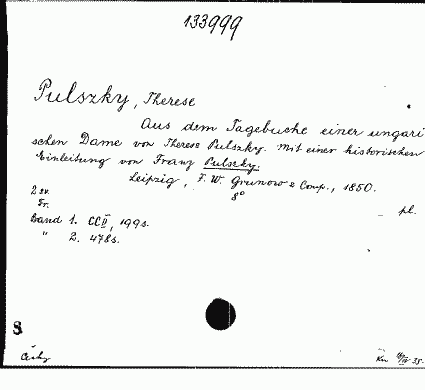 133999
Pulszky, Therese
Aus dem Tagebuche einer ungari
schen Dame von Therese Pulszky. Mit einer historischen
Einleitung von Franz Pulszky.
Leipzig, F. W. Grunow & Comp., 1850.
2 sv. 8°
Fr. pl.
Band 1. CCII, 199 s.
" 2. 478 s.
S